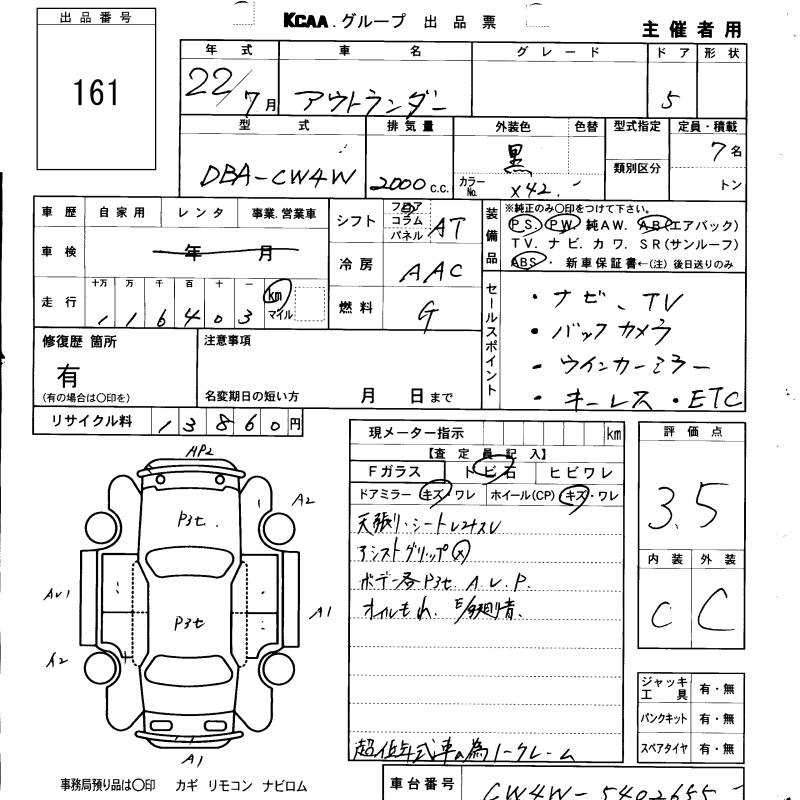 出品番号
161
KCAA グループ 出品票
主催者用
年式 車名 グレード ドア 形状
22/7月 アウトランダー 5
型式 排気量 外装色 色替 型式指定 定員・積載
DBA-CW4W 2000 c.c. 黒 カラーNo. X42 類別区分 7名
トン
車歴 自家用 レンタ 事業.営業車
車検 年 月
走行 十万 万 千 百 十 一
1 1 6 4 0 3 km マイル
シフト フロア コラム パネル AT
冷房 AAC
燃料 G
装備品
※純正のみ〇印をつけて下さい。
P.S. P.W. 純AW. A.B(エアバック)
TV. ナビ. カワ. SR(サンルーフ)
ABS・ 新車保証書←(注) 後日送りのみ
セールスポイント
・ナビ、TV
・バックカメラ
・ウインカーミラー
・キーレス・ETC
修復歴 箇所
有
(有の場合は〇印を)
注意事項
名変期日の短い方 月 日まで
リサイクル料 13860円
現メーター指示 km
【査定員記入】
Fガラス トビ石 ヒビワレ
ドアミラー キズ・ワレ ホイール(CP) キズ・ワレ
天張り・シート
アシストグリップ
ボデー各P3t. A.U.P.
オイルもれ.
超低年式車の為ノークレーム
評価点
3.5
内装 外装
C C
ジャッキ 工具 有・無
パンクキット 有・無
スペアタイヤ 有・無
AP2
P3t.
A2
AU1
P3t
A1
A2
A1
事務局預り品は〇印 カギ リモコン ナビロム
車台番号 CW4W-5402655